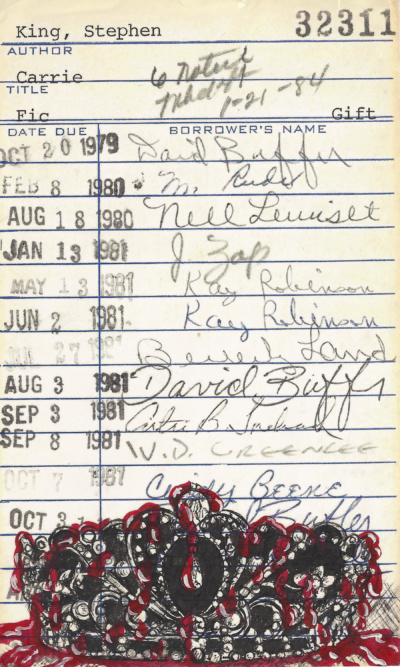 King, Stephen 32311
AUTHOR
Carrie
TITLE
1-21-84
Fic Gift
DATE DUE BORROWER'S NAME
OCT 20 1979 David Buffer
FEB 8 1980 M.
AUG 18 1980 Nell
JAN 13 1981 J. Zap
MAY 13 1981 Kay Robinson
JUN 2 1981 Kay Robinson
27 1981 Land
AUG 3 1981 David Buffer
SEP 3 1981 B.
SEP 8 1981 W.D. GREENLEE
OCT 7 1981 BEENE
OCT 3 Butler
A